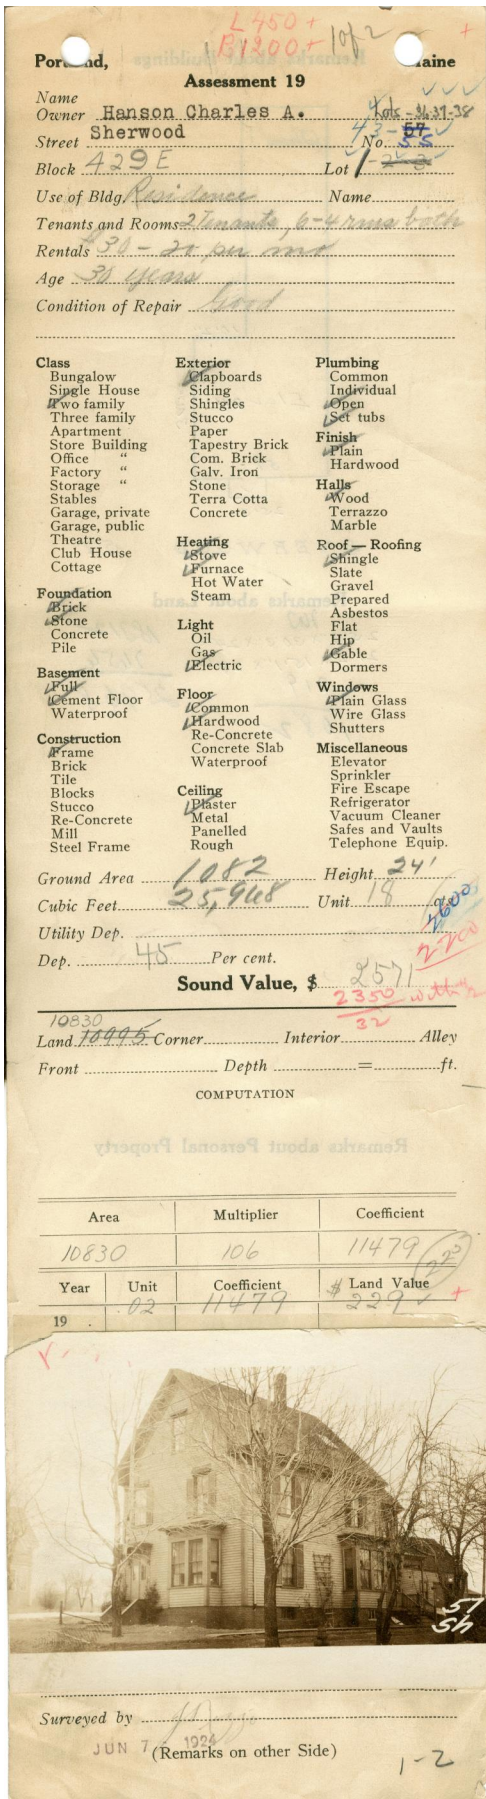 L 450 +
B 1200 + 1 of 2
+
Portland, Maine
Assessment 19
Name
Owner Hanson Charles A. Lots - 36-37-38
Street Sherwood No. 43 - 57 55
Block 429 E Lot 1-2-3
Use of Bldg. Residence Name
Tenants and Rooms 2 Tenants, 6-4 rms both
Rentals $30 - 20 per mo
Age 30 years
Condition of Repair Good
Class
Bungalow
Single House
Two family
Three family
Apartment
Store Building
Office "
Factory "
Storage "
Stables
Garage, private
Garage, public
Theatre
Club House
Cottage
Foundation
Brick
Stone
Concrete
Pile
Basement
Full
Cement Floor
Waterproof
Construction
Frame
Brick
Tile
Blocks
Stucco
Re-Concrete
Mill
Steel Frame
Exterior
Clapboards
Siding
Shingles
Stucco
Paper
Tapestry Brick
Com. Brick
Galv. Iron
Stone
Terra Cotta
Concrete
Heating
Stove
Furnace
Hot Water
Steam
Light
Oil
Gas
Electric
Floor
Common
Hardwood
Re-Concrete
Concrete Slab
Waterproof
Ceiling
Plaster
Metal
Panelled
Rough
Plumbing
Common
Individual
Open
Set tubs
Finish
Plain
Hardwood
Halls
Wood
Terrazzo
Marble
Roof — Roofing
Shingle
Slate
Gravel
Prepared
Asbestos
Flat
Hip
Gable
Dormers
Windows
Plain Glass
Wire Glass
Shutters
Miscellaneous
Elevator
Sprinkler
Fire Escape
Refrigerator
Vacuum Cleaner
Safes and Vaults
Telephone Equip.
Ground Area 1082 Height 24'
Cubic Feet 25,968 Unit 18 cts
2600
Utility Dep.
2200
Dep. 45 Per cent.
Sound Value, $ 2571
2350
32
10830
Land 10995 Corner Interior Alley
Front Depth = ft.
COMPUTATION
Remarks about Personal Property
Area Multiplier Coefficient
10830 106 11479
225
Year Unit Coefficient $ Land Value
.02 11479 229 +
19 .
57
54
Surveyed by
JUN 7 1924
(Remarks on other Side)
1-2